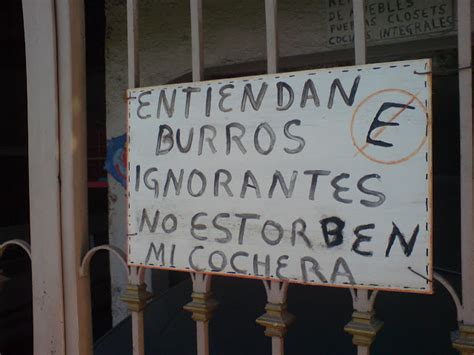 DE MUEBLES
PUERTAS CLOSETS
COCINAS INTEGRALES
ENTIENDAN
E
BURROS
IGNORANTES
NO ESTORBEN
MI COCHERA